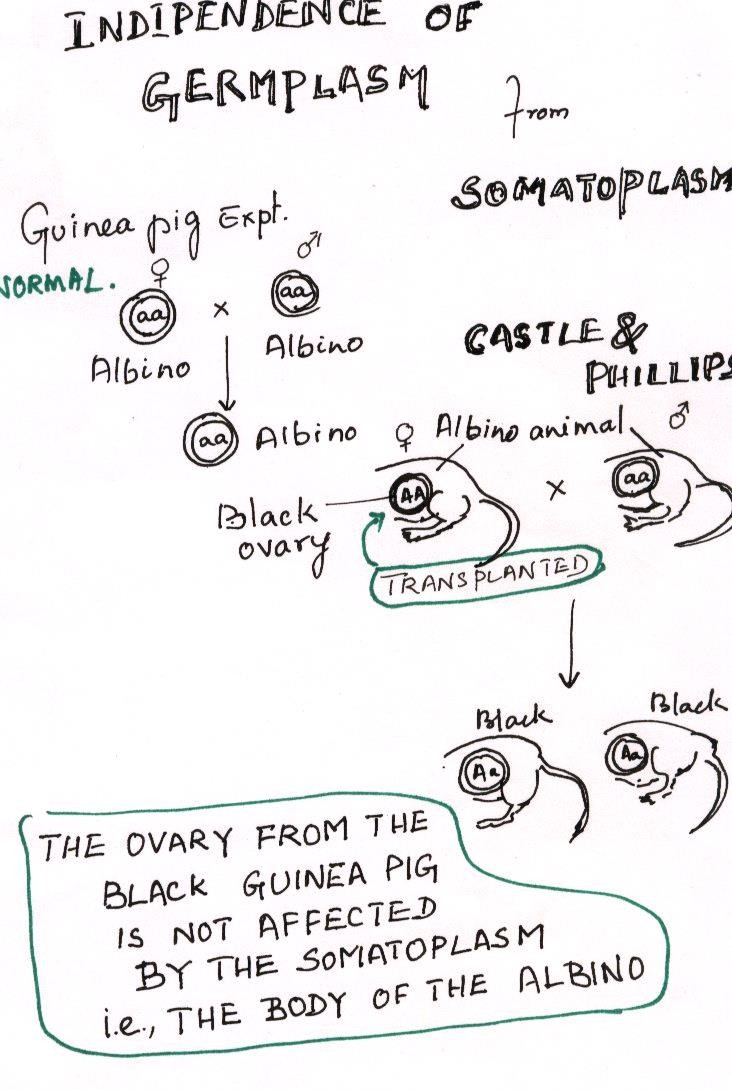 INDIPENDENCE OF
GERMPLASM
from
SOMATOPLASM
Guinea pig Expt.
NORMAL.
♀ ♂
aa x aa
Albino Albino
aa Albino
CASTLE &
PHILLIPS
♀ Albino animal ♂
AA x aa
Black
ovary
TRANSPLANTED
Black Black
Aa Aa
THE OVARY FROM THE
BLACK GUINEA PIG
IS NOT AFFECTED
BY THE SOMATOPLASM
i.e., THE BODY OF THE ALBINO